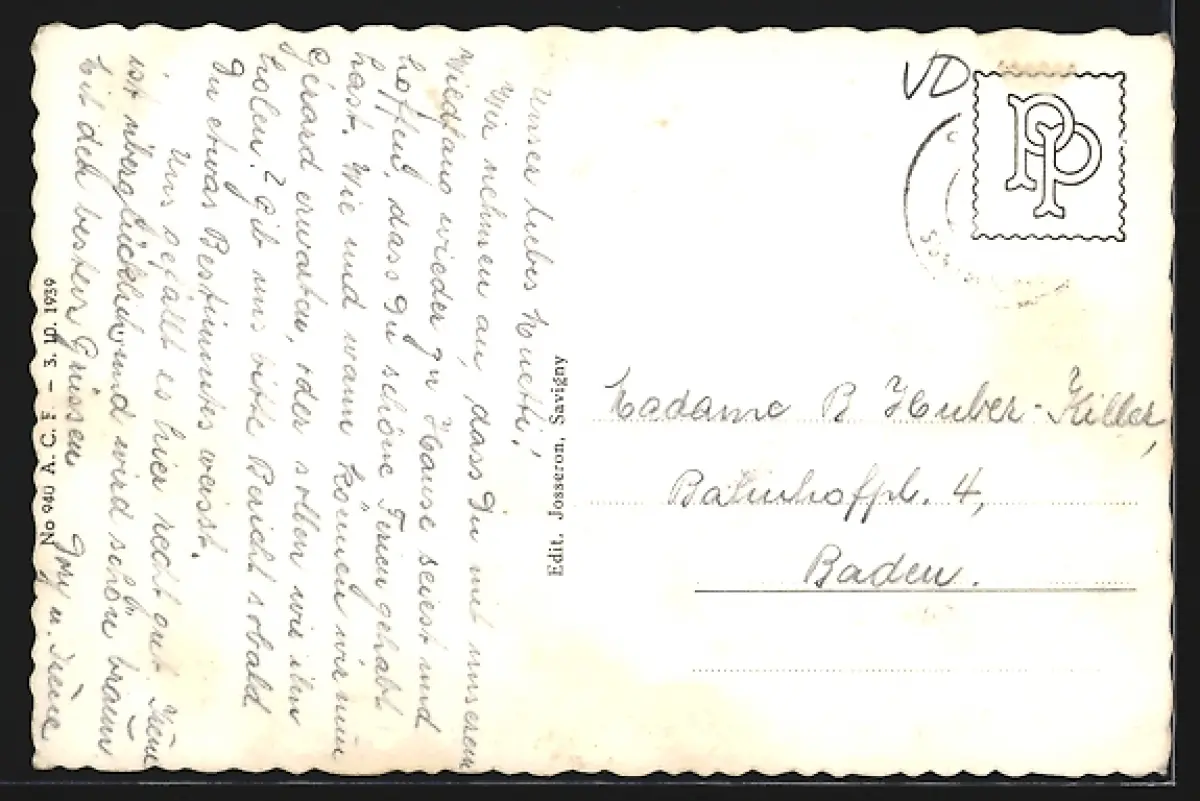 Unser liebes Muetti!
Wir nehmen an, dass Du mit unserem
Wildfang wieder zu Hause seiest und
hoffen, dass Du schöne Ferien gehabt
hast. Wie und wann können wir nun
Gérard erwarten, oder sollen wir ihn
holen? Gib uns bitte Bericht sobald
Du etwas Bestimmtes weisst.
Uns gefällt es hier recht gut. Irène
ist überglücklich und wird schön braun
Mit den besten Grüssen
u. Irène
No 940 A. C. F – 3. 10. 1939
Edit. Josseron, Savigny
VD
PP
Madame B Huber-Killer,
Bahnhofpl. 4,
Baden.